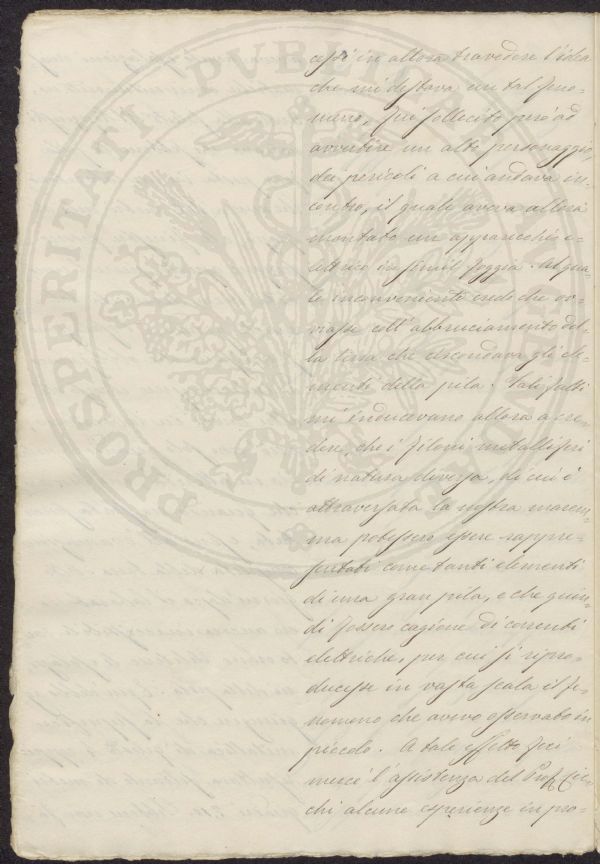 cessi in allora travedere l'idea
che mi destava un tal feno-
meno, fui sollecito però ad
avvertire un alto personaggio,
dei pericoli a cui andava in-
contro, il quale aveva allora
montato un apparecchio e-
lettrico in simil foggia. Al qua-
le inconveniente credo che ov-
viasse coll'abbruciamento del-
la tina che circondava gli ele-
menti della pila. Tali fatti
mi inducevano allora a cre-
dere, che i filoni metalliferi
di natura diversa, di cui è
attraversata la nostra marem-
ma potessero essere rappre-
sentati come tanti elementi
di una gran pila, e che quin-
di fossero cagione di correnti
elettriche, per cui si ripro-
ducesse in vasta scala il fe-
nomeno che avevo osservato in
piccolo. A tale effetto feci
mercè l'assistenza del Prof.
chi alcune esperienze in pro-
PROSPERITATI PUBLICAE